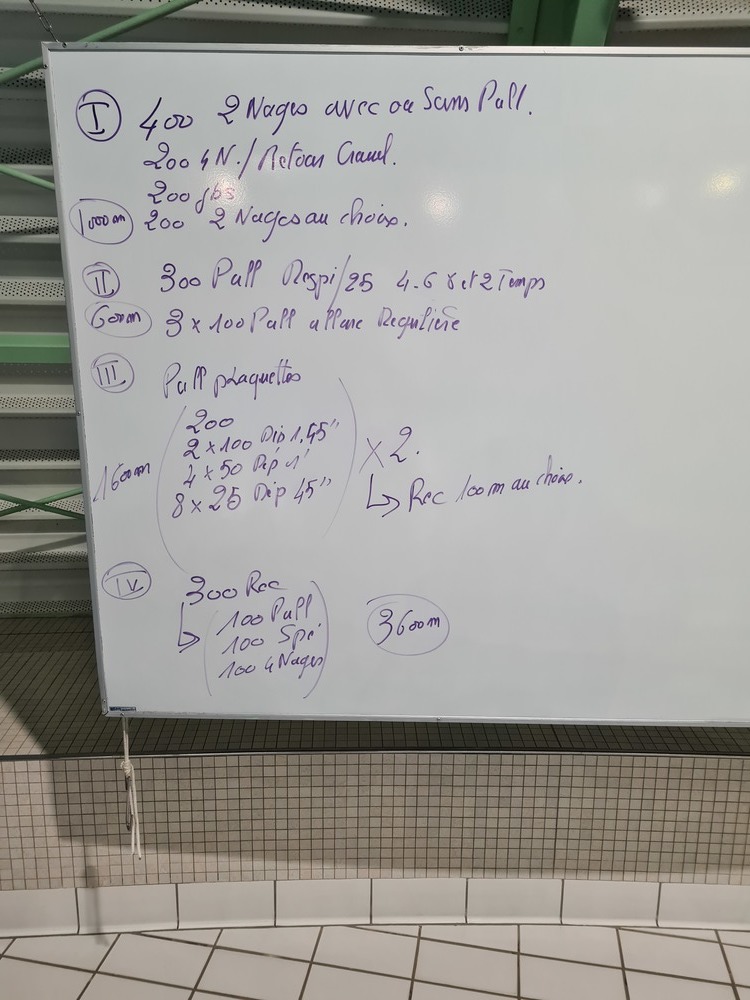 I 400 2 Nages avec ou Sans Pull.
200 4N./Retour Crawl.
200 jbs
1000m 200 2 Nages au choix.
II 300 Pull Respi/25 4.6 8 et 2 Temps
600m 3 x 100 Pull allure Regulière
III Pull plaquettes
200
2 x 100 Dép 1.45"
4 x 50 Dép 1'
8 x 25 Dép 45"
1600m x 2.
↳ Rec 100m au choix.
IV 300 Rec
↳ 100 Pull
100 Spé.
100 4 Nages
3600m